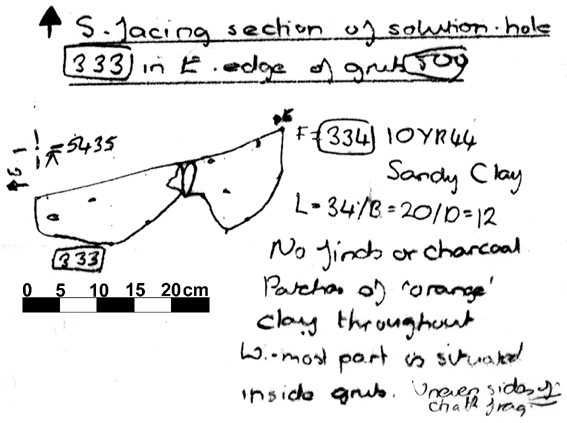 S. facing section of solution-hole
333 in E. edge of grub 500
5435
F = 334 10YR44
Sandy Clay
L = 34/B = 20/D = 12
333
No finds or charcoal
0 5 10 15 20cm
Patches of 'orange'
clay throughout
W.-most part is situated
inside grub. Uneven sides of
chalk frag.